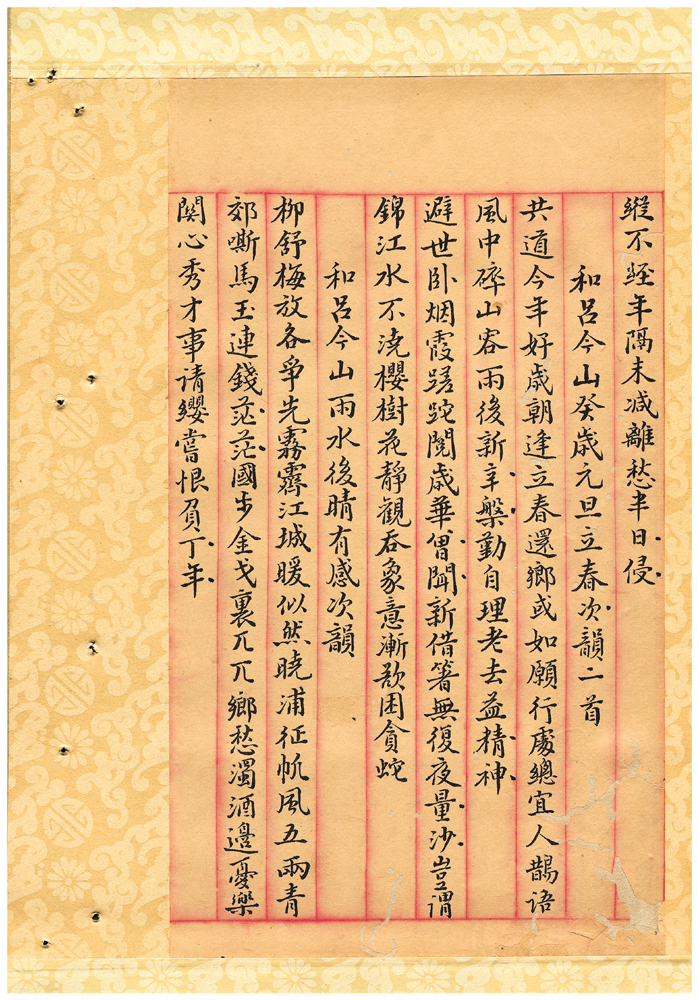 縱不經年隔未減離愁半日侵
和呂今山癸歲元旦立春次韻二首
共道今年好歲朝逢立春還鄉或如願行處總宜人鵲語
風中碎山容雨後新辛槃勤自理老去益精神
避世臥烟霞蹉跎閱歲華曾聞新借箸無復夜量沙豈謂
錦江水不澆櫻樹花靜觀吞象意漸欲困貪蛇
和呂今山雨水後晴有感次韻
柳舒梅放各爭先霧霽江城暖似然曉浦征帆風五兩青
郊嘶馬玉連錢茫茫國步金戈裏兀兀鄉愁濁酒邊憂樂
關心秀才事請纓嘗恨負丁年